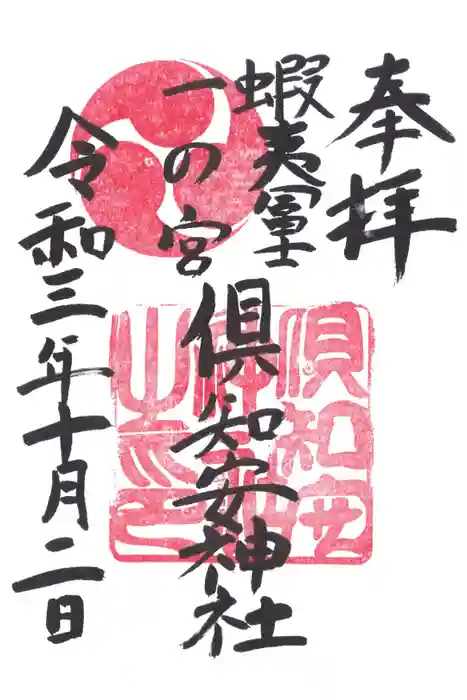 奉拝
蝦夷富士
一の宮
倶知安神社
令和三年十月二日